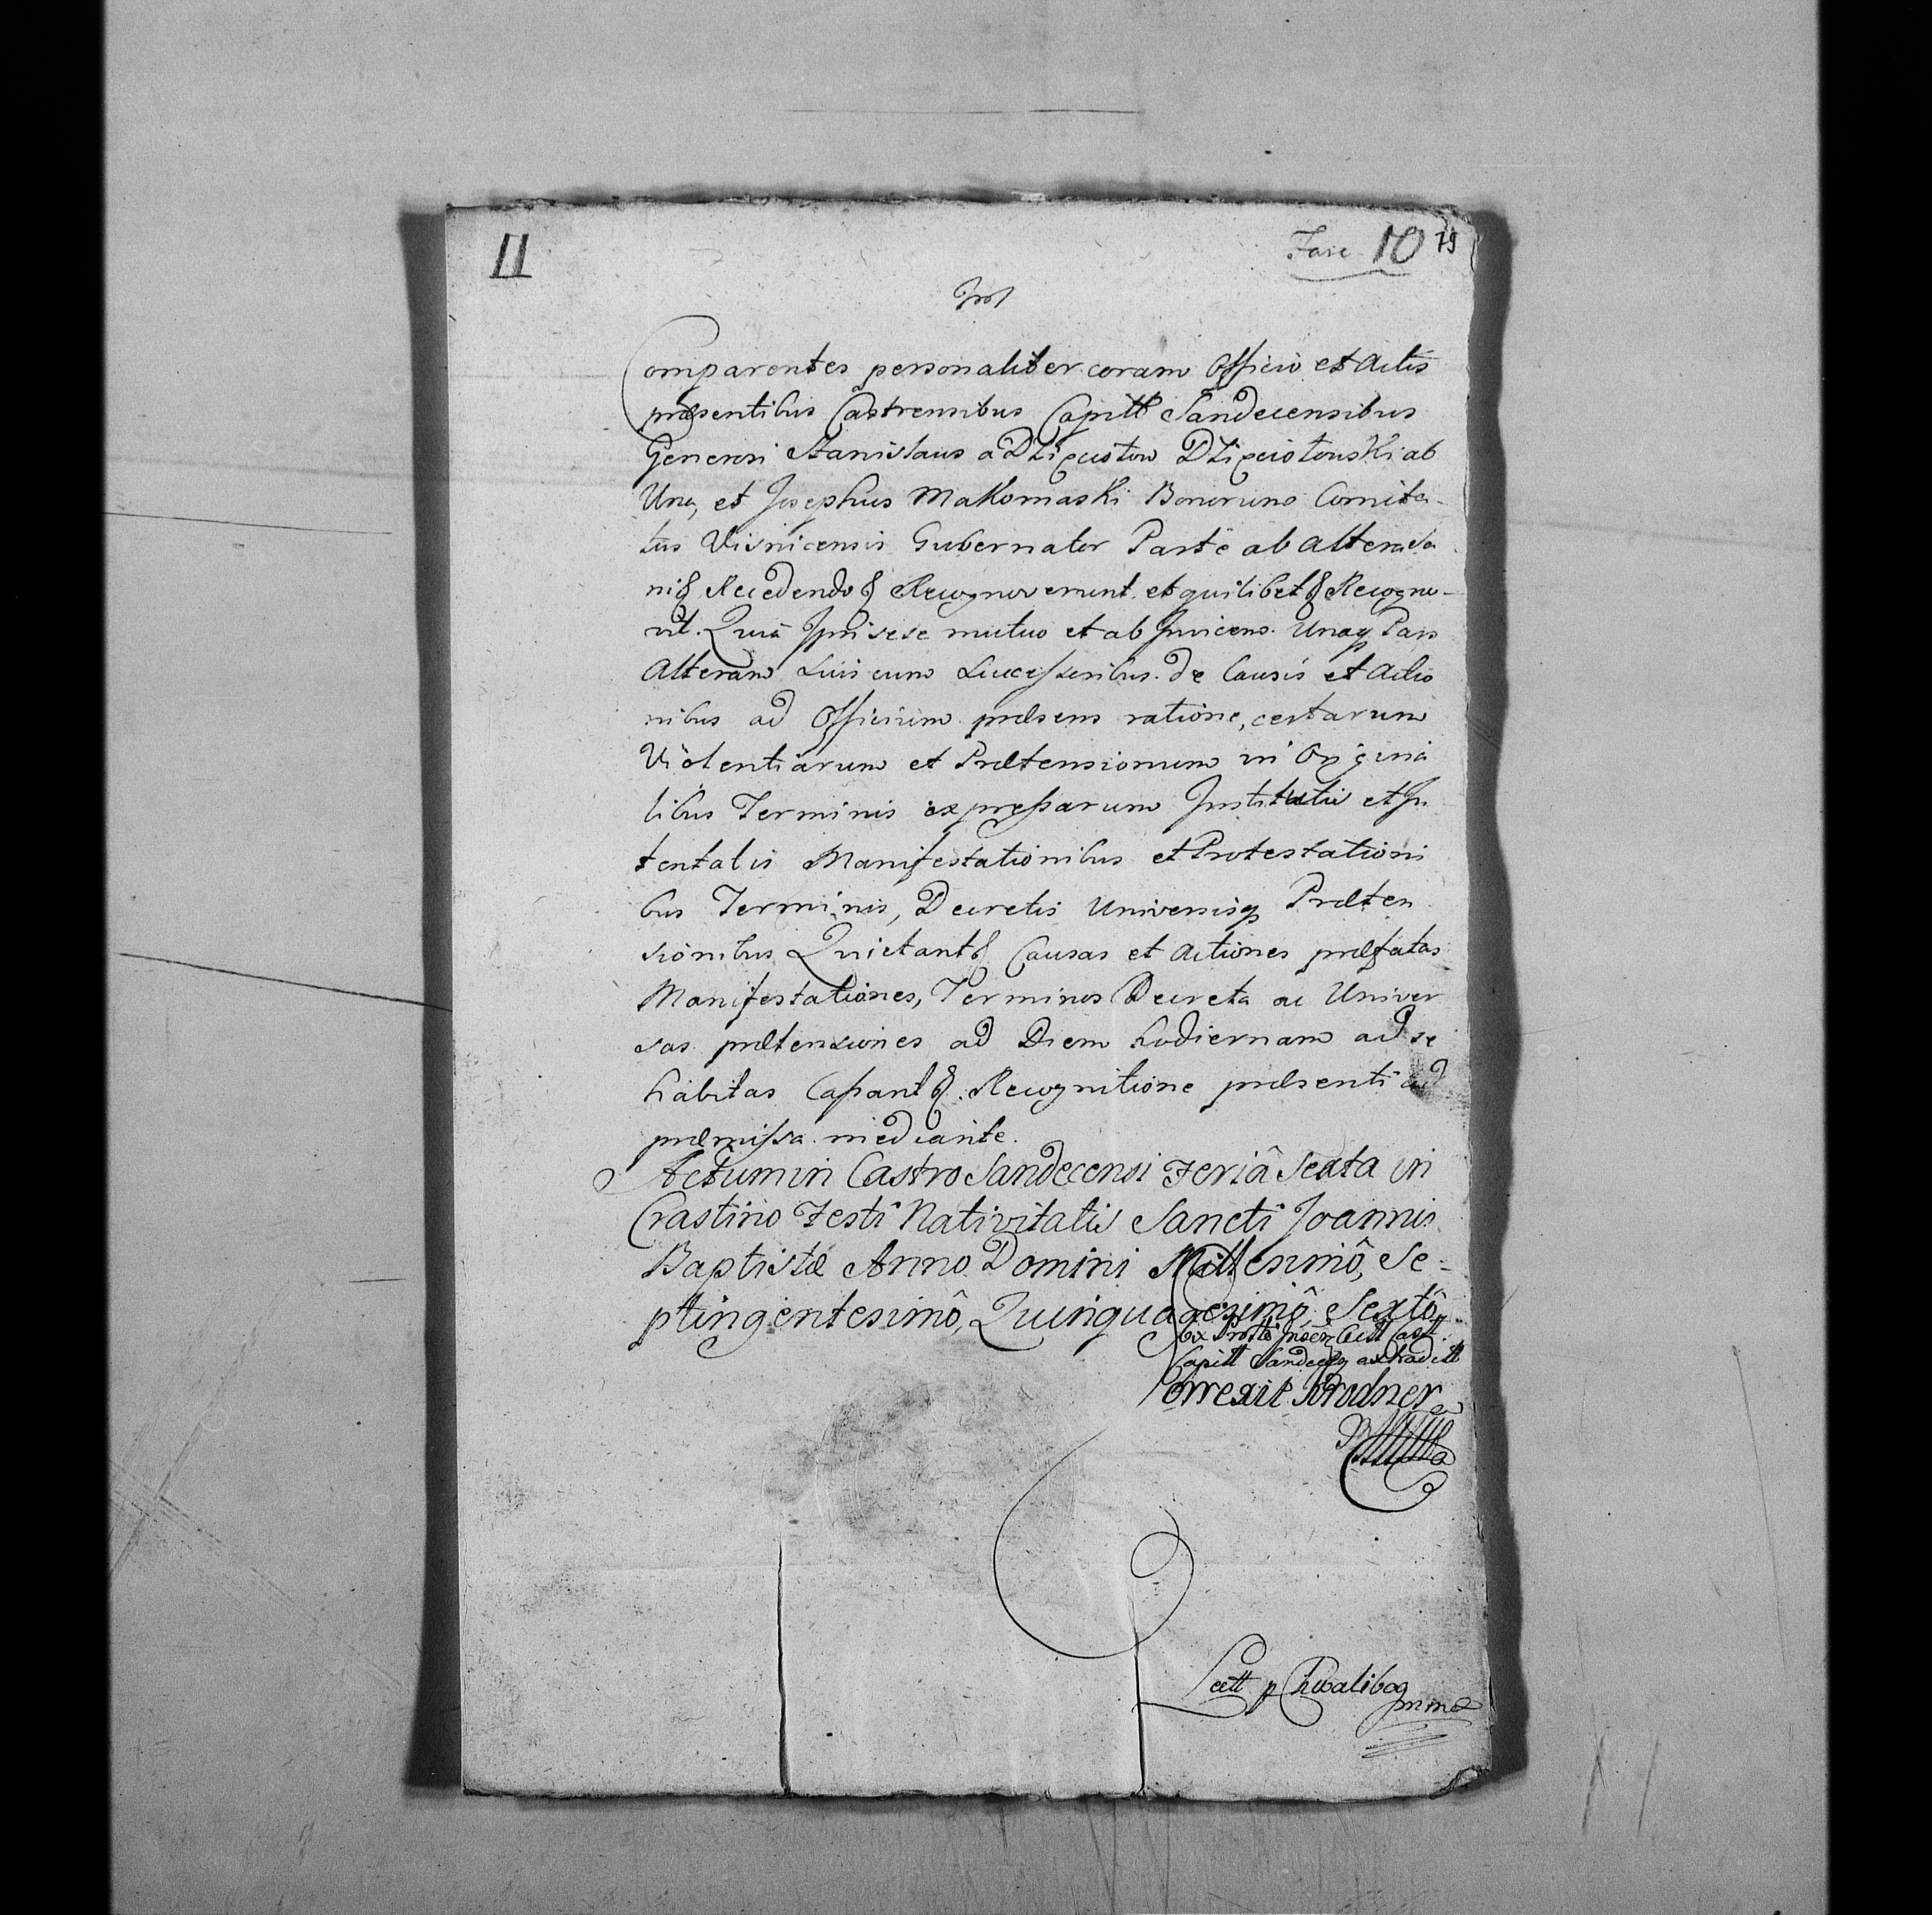 II
Fasc 10 79
Comparentes personaliter coram Officio et Actis
præsentibus Castrensibus Capitt Sandecensibus
Generosi Stanislaus a
Una, et Josephus Makomaski Bonorum Comita-
tus Visnicensis Gubernator Parte ab altera sa
ni Recedendo Recognoverunt et quilibet Recogno-
vit. Quia Ipsi sese mutuo et ab Invicem. Unaq Pars
Alteram Suis cum Successoribus. de Causis et Actio
nibus ad Officium præsens ratione, certarum
Violentiarum et Prætensionum in Origina
libus Terminis expressarum Institutis et In
tentatis Manifestationibus et Protestationi
bus Terminis, Decretis Universisq Præten
sionibus Quietant Causas et Actiones præfatas
Manifestationes, Terminos Decreta ac Univer
sas prætensiones ad Diem hodiernam ad se
habitas Cassant. Recognitione præsenti ad
præmissa mediante.
Actum in Castro Sandecensi Feriâ Sexta in
Crastino Festi Nativitatis Sancti Joannis
Baptistæ Anno Domini Millesimô, Se-
ptingentesimô, Quinquagesimô, Sextô
Capitt Sandecen extradit
Correxit
Lectt p Chwalibog
mmp